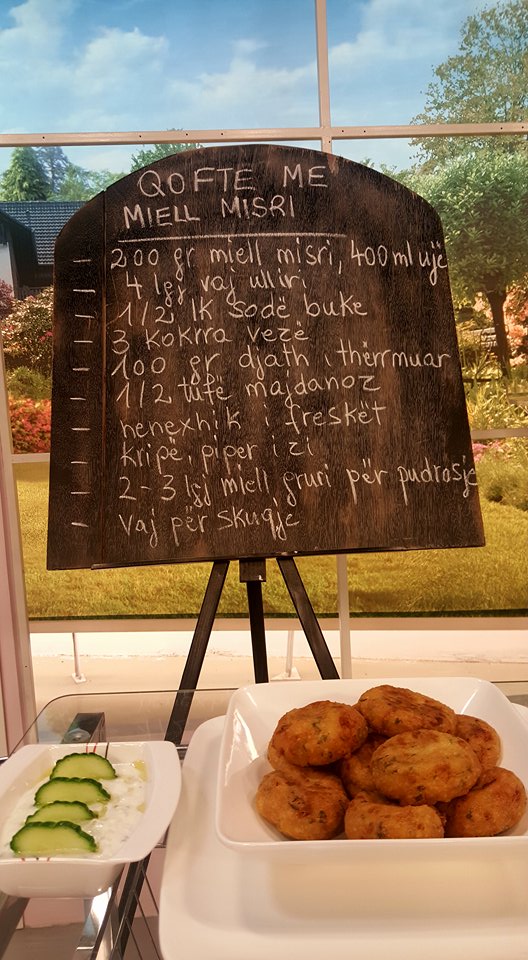 QOFTE ME
MIELL MISRI
- 200 gr miell misri, 400 ml ujë
- 4 lgj vaj ulliri
- 1/2 lk sodë buke
- 3 kokrra vezë
- 100 gr djath i thërrmuar
- 1/2 tufë majdanoz
- nenexhik i freskët
kripë, piper i zi
- 2-3 lgj miell gruri për pudrosje
- vaj për skuqje